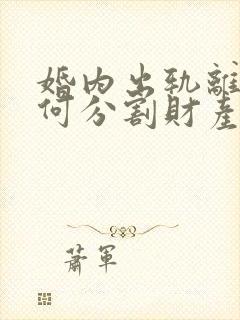 婚内出轨離
何分割財產
蕭軍